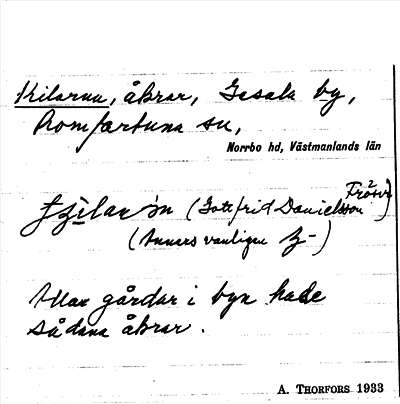 Kilarna, åkrar, Gesala by,
Romfartuna sn,
Norrbo hd, Västmanlands län
(Gottfrid Danielsson
(Annars vanligen
Alla gårdar i byn hade
sådana åkrar.
A. THORFORS 1933